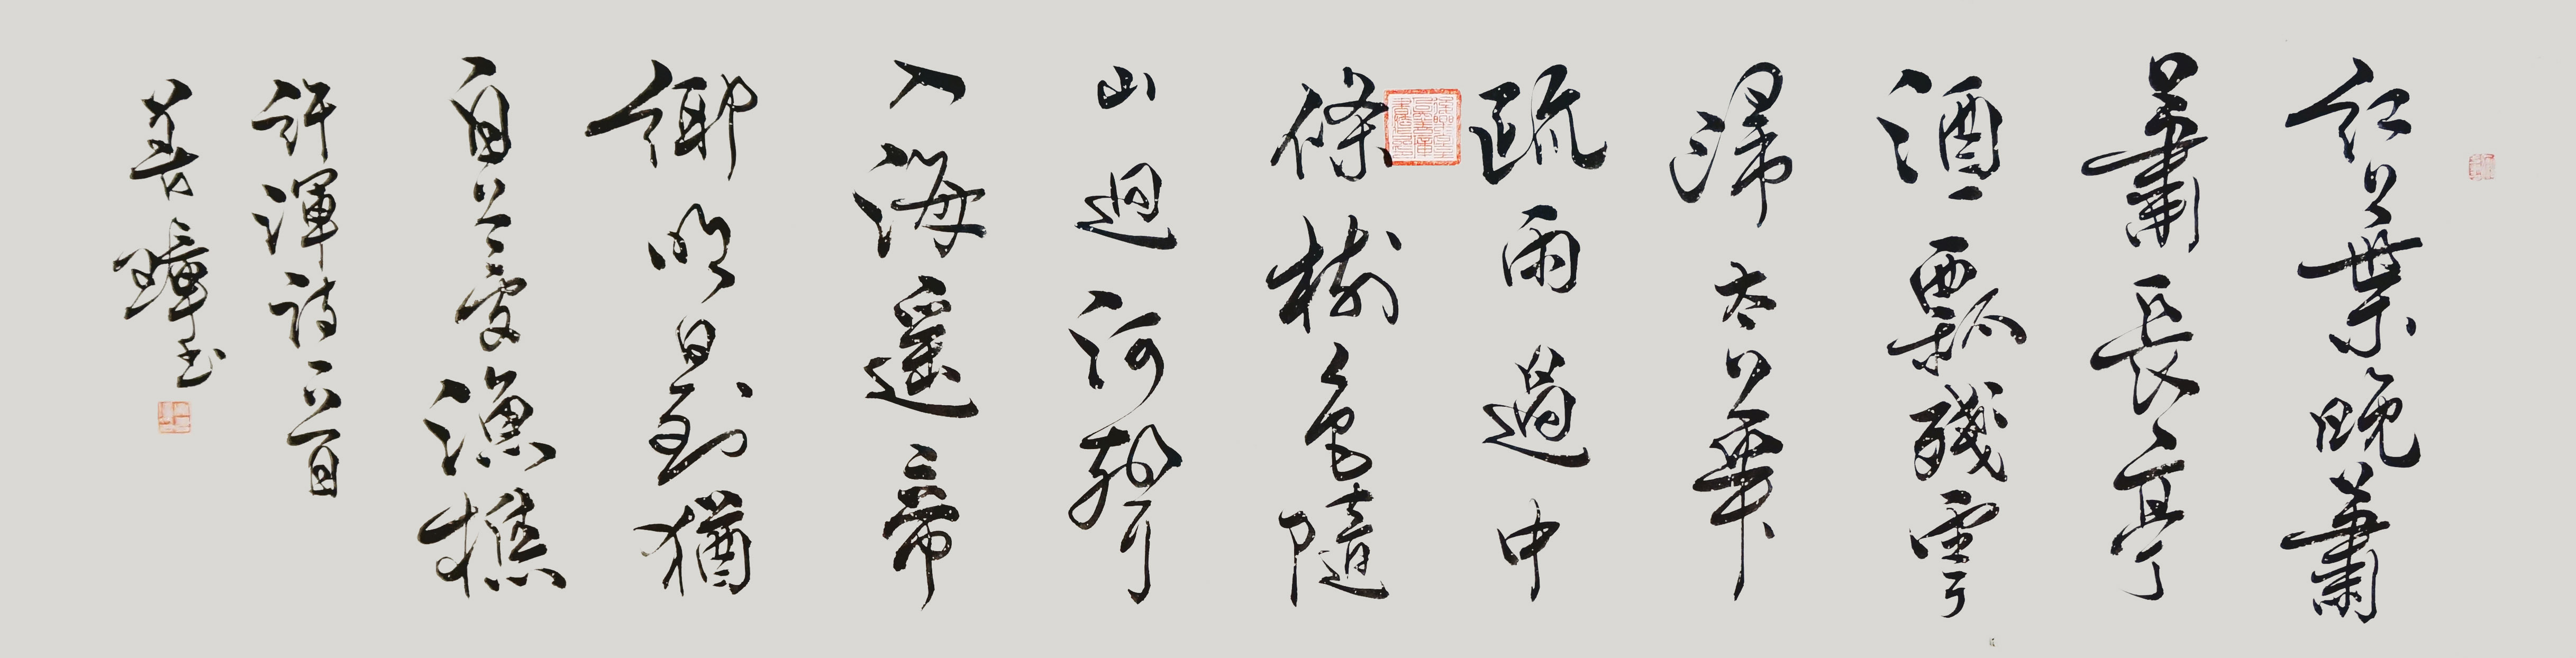 紅葉晚蕭
蕭長亭
酒一瓢殘雲
歸太華
疏雨過中
條樹色隨
山迴河聲
入海遙帝
鄉明日到猶
自夢漁樵
許渾詩一首
書